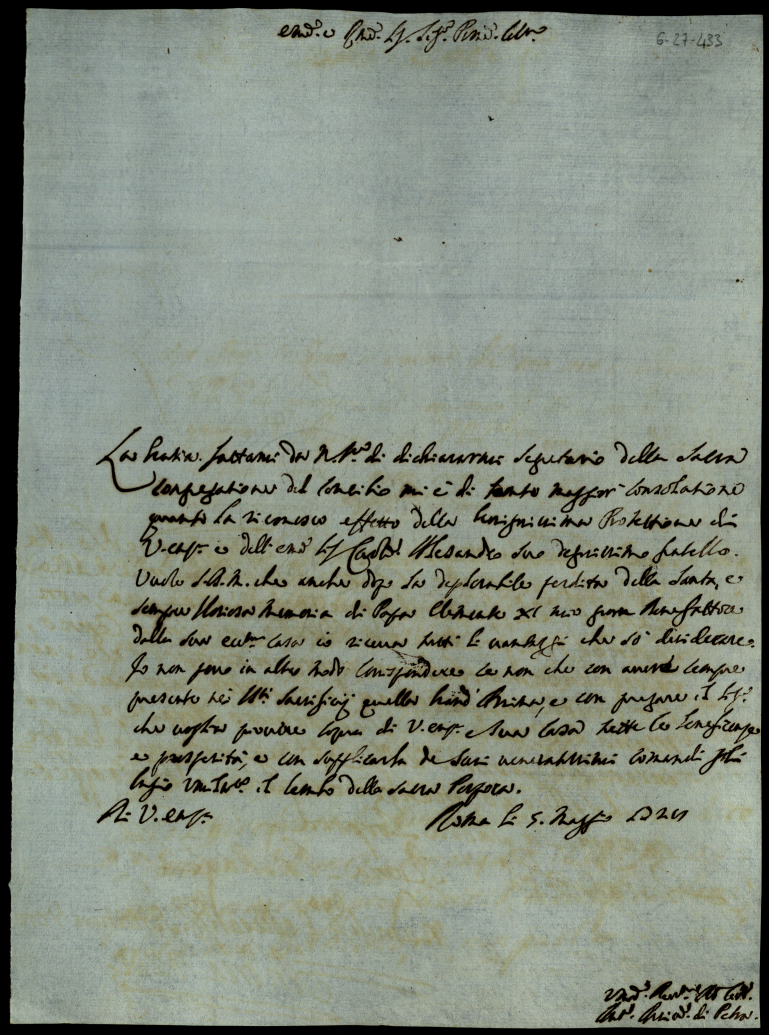 Em.º e R.mo Sig. Sig. P.rone Col.mo
6-27-433
La Gratia fattami da N. S.re di dichiararmi Segretario della Sacra
Congregatione del Concilio mi è di tanto maggior consolatione
quanto la riconosco effetto della benignissima Protettione di
V. Em.za e dell' Em.º Sig. Card. Alesandro suo degnissimo fratello.
Vuole S.D.M. che anche dopo la deplorabile perdita della Santa, e
sempre gloriosa memoria di Papa Clemente XI mio gran Benefattore
dalla sua ecc.ma casa io riceva tutti li vantaggi che so desiderare.
Io non posso in altro modo corrispondere se non che con avere sempre
presente nei Sacrificij quella grand' Anima, e con pregare il Sig.
che voglia piovere sopra di V. Em.za e sua Casa tutte le beneficenze
e prosperità, e con supplicarla de suoi veneratissimi comandi
bacio il lembo della Sacra Porpora.
Di V. Em.za Roma li 5. Maggio 1721
Um.º Dev.mo Obl.
di Petra